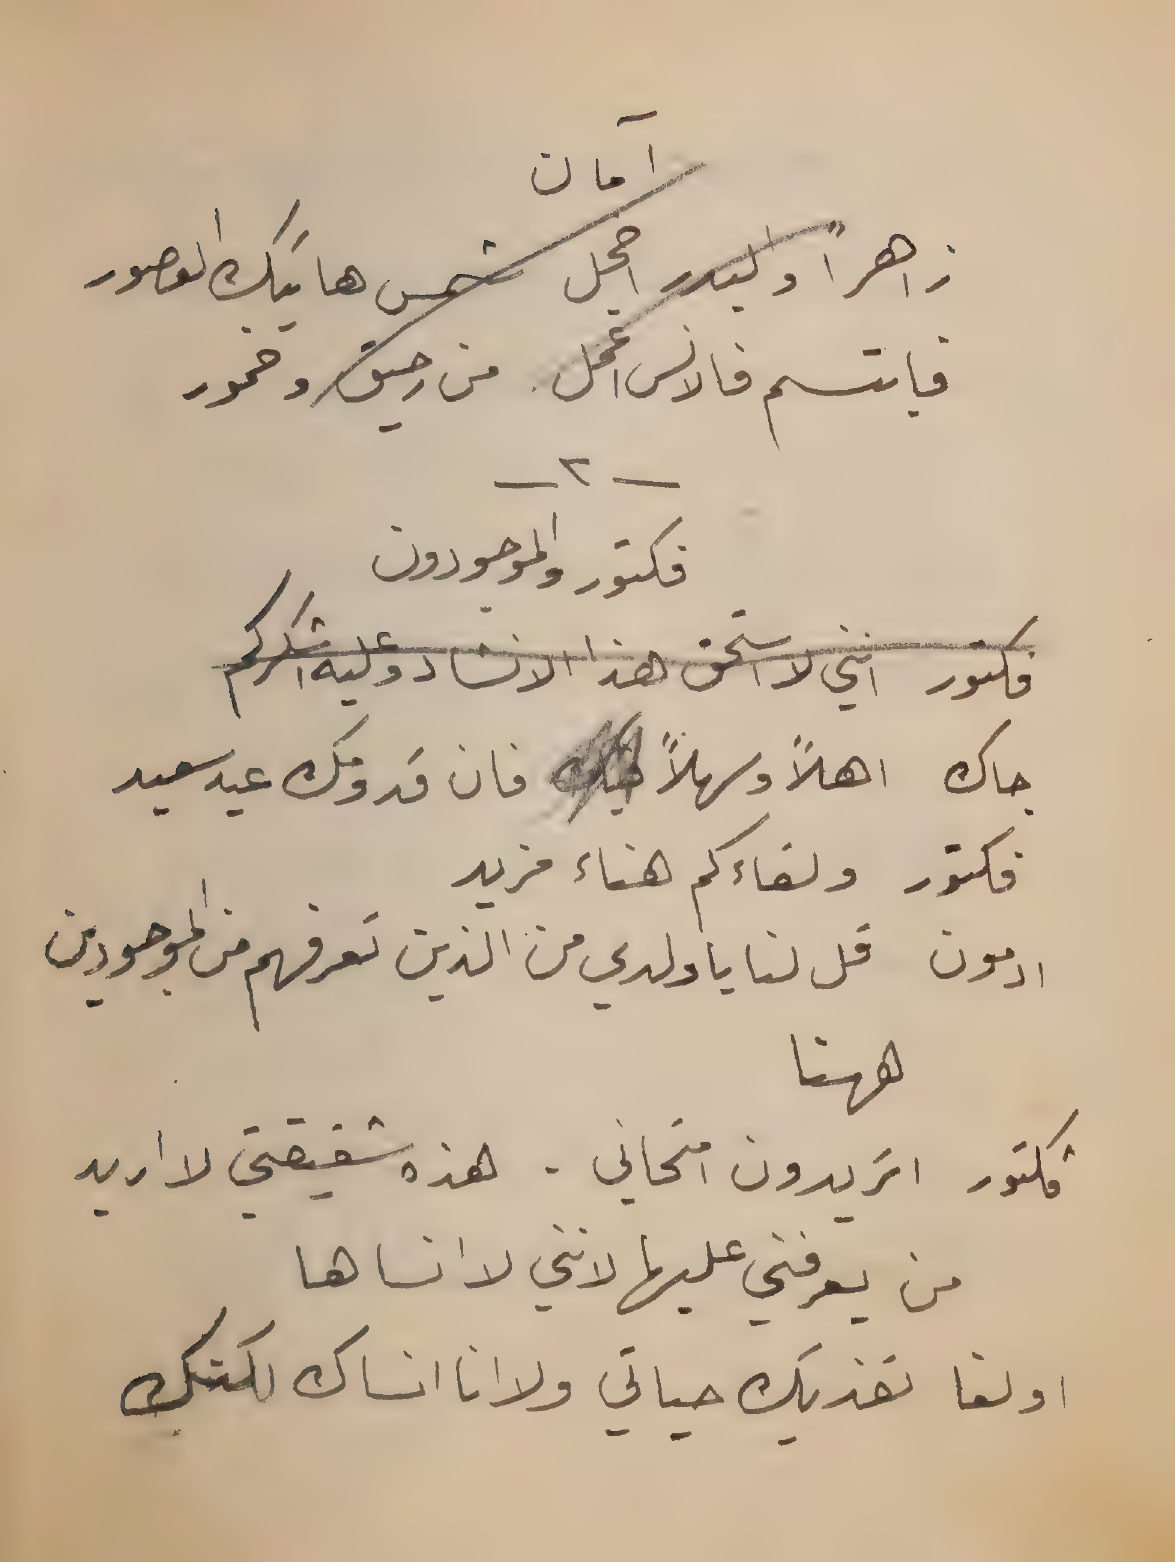 آمان
زاهراً والبدر اخجل شمس هاتيك القصور
فابتسم فالانس اكمل من رحيق وخمور
— ٢ —
فكتور والموجودون
فكتور انني لا استحق هذا الانشاد وعليه اشكركم
جاك اهلاً وسهلاً فان قدومك عيد سعيد
فكتور ولقاءكم هناء مزيد
ادمون قل لنا يا ولدي من الذين تعرفهم من الموجودين
ههنا
فكتور اتريدون امتحاني . هذه شقيقتي لا اريد
من يعرفني عليها لانني لا انساها
اولغا تفديك حياتي ولا انا انساك